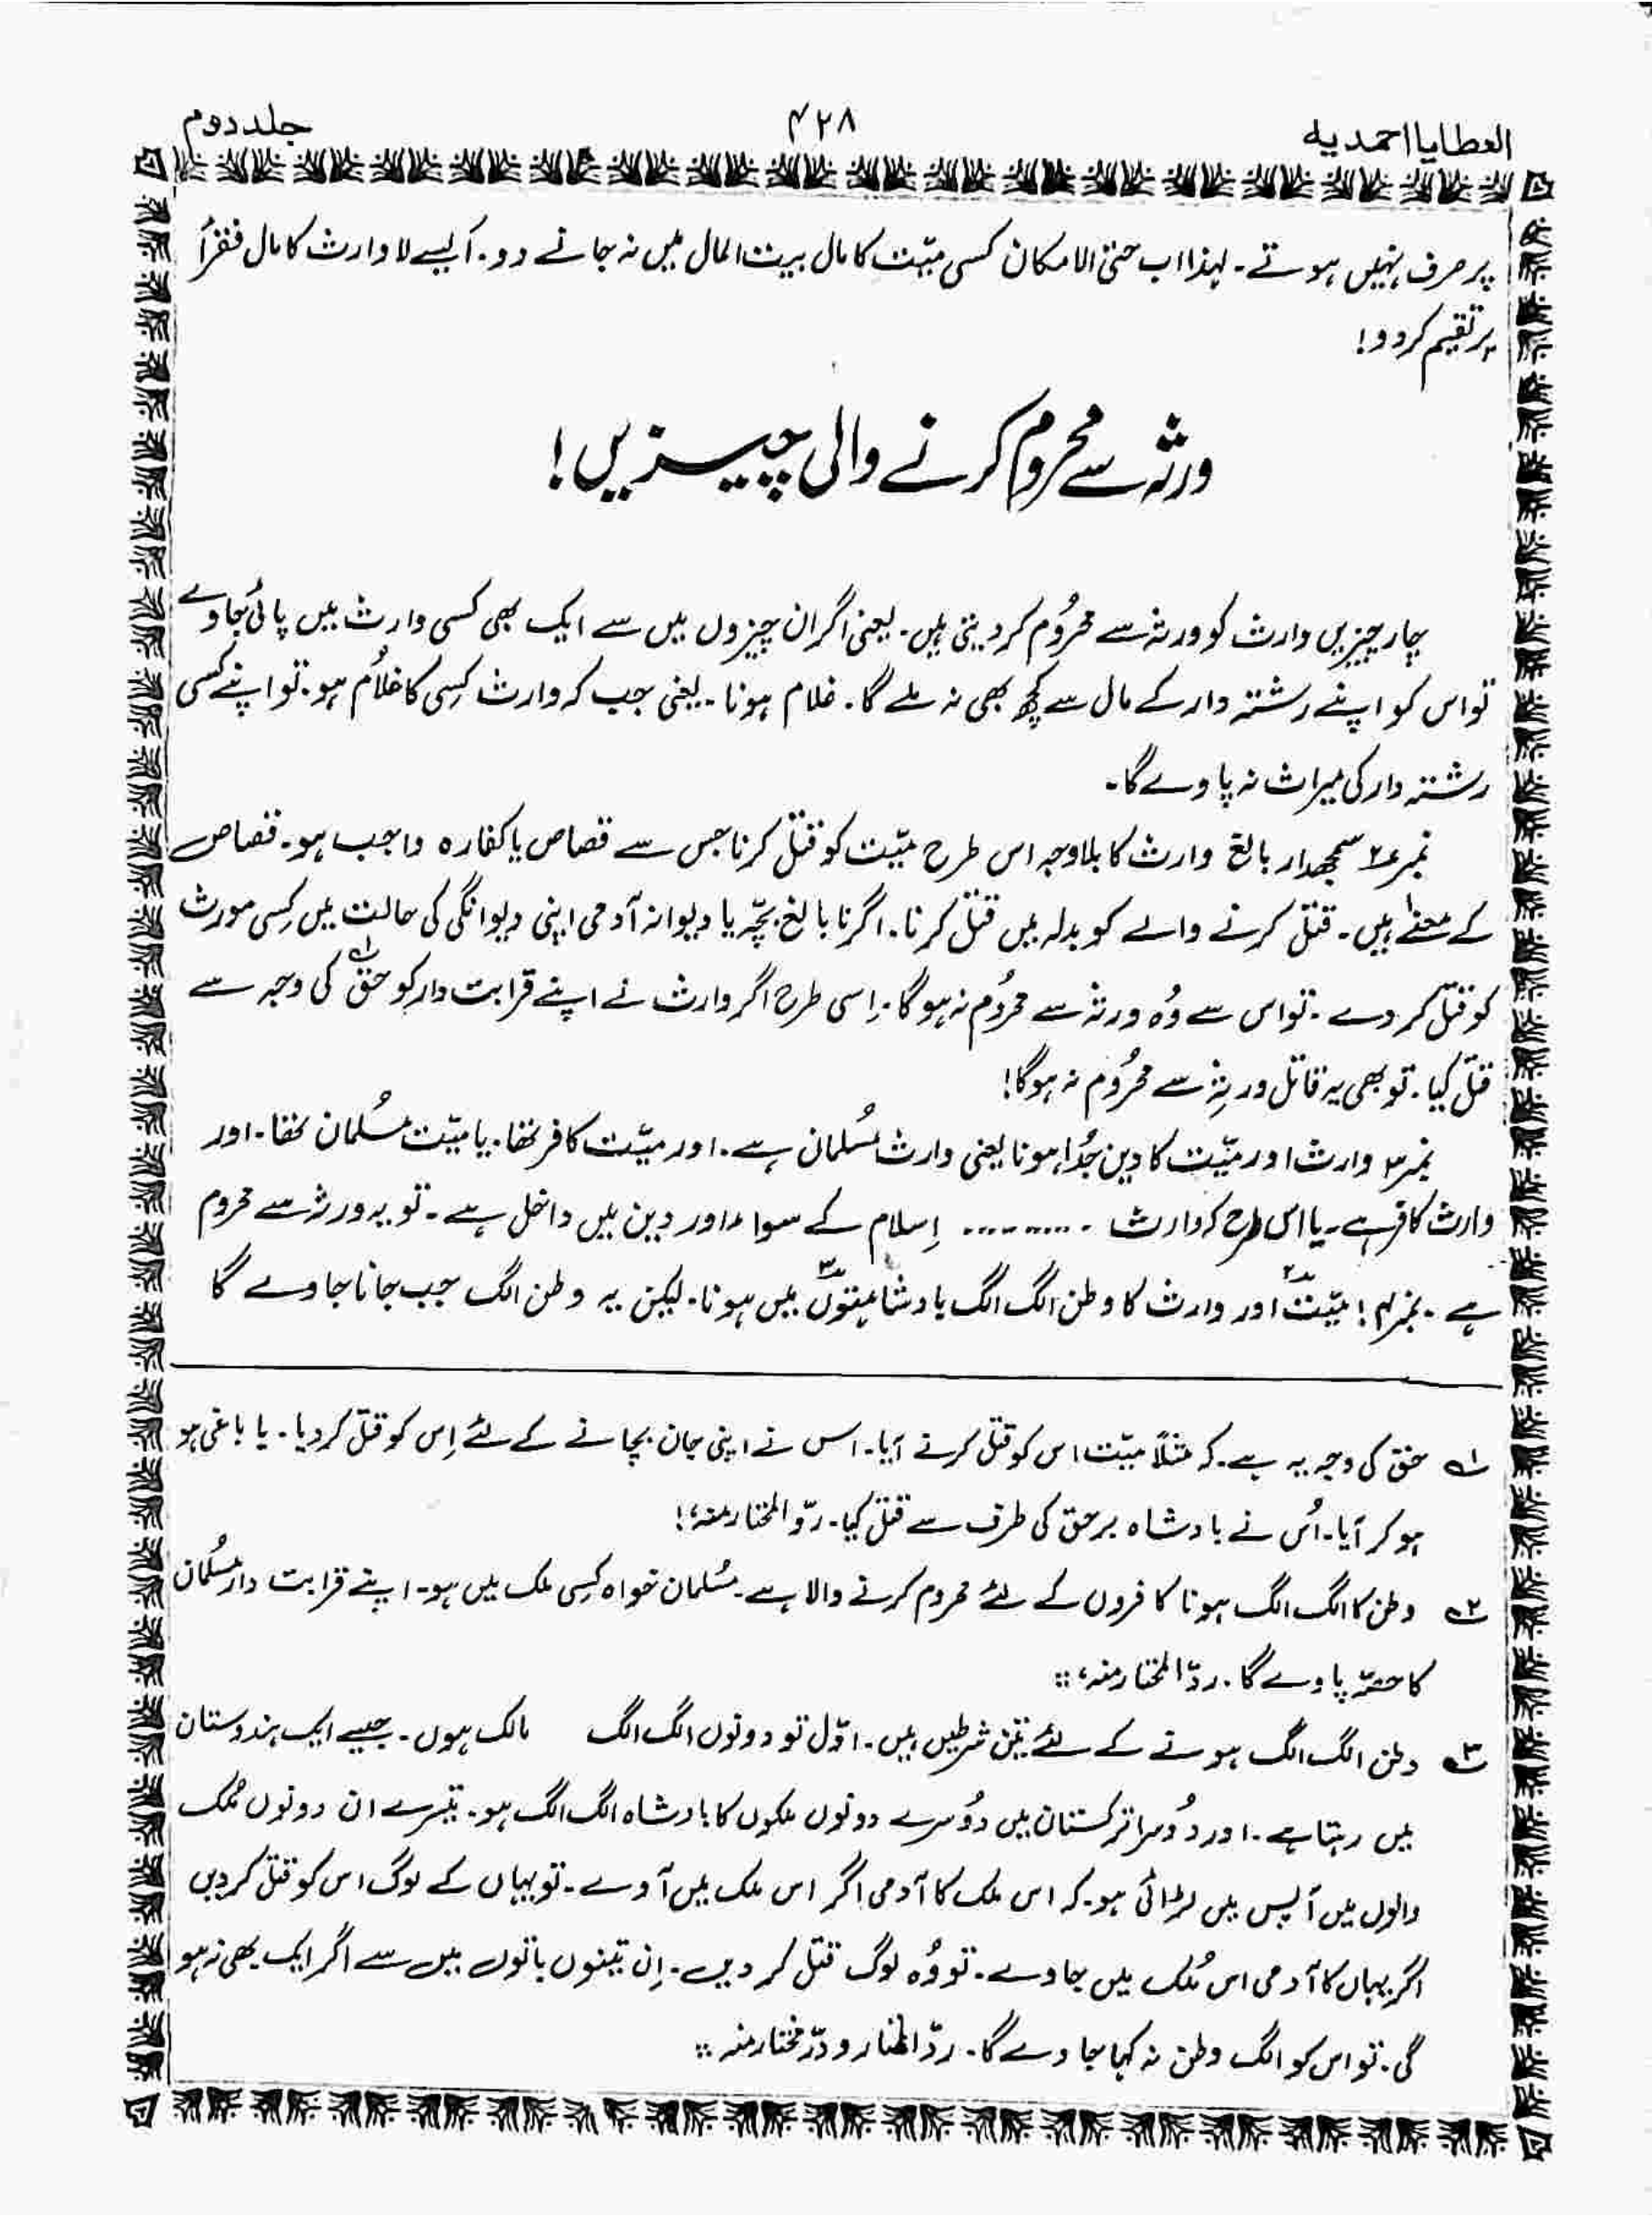 العطایااحمدیہ
۴۲۸
جلددوم
پر صرف نہیں ہوتے۔ لہذا اب حتیٰ الامکان کسی میّت کا مال بیت المال میں نہ جانے دو۔ اَیسے لاوارث کا مال فقراُ
پر تقیم کردو!
ورثہ سے محروم کرنے والی چیزیں!
چار چیزیں وارث کو ورثہ سے محرُوم کردیتی ہیں۔ یعنی اگر ان چیزوں میں سے ایک بھی کسی وارث میں پائی جاوے
تو اس کو اپنے رشتہ دار کے مال سے کچھ بھی نہ ملے گا۔ غلام ہونا۔ یعنی جب کہ وارث کِسی کا غلاُم ہو۔ تو اپنے کسی
رشتہ دار کی میراث نہ پاوے گا۔
نمبر ۲ سمجھدار بالغ وارث کا بلاوجہ اس طرح میّت کو قتل کرنا جس سے قصاص یا کفارہ واجب ہو۔ قصاص
کے معنےٰ ہیں۔ قتل کرنے والے کو بدلہ میں قتل کرنا۔ اگر نابالغ بچّہ یا دیوانہ آدمی اپنی دیوانگی کی حالت میں کِسی مورث
کو قتل کردے۔ تو اس سے وُہ ورثہ سے محرُوم نہ ہوگا۔ اِسی طرح اگر وارث نے اپنے قرابت دار کو حق ؎۱ کی وجہ سے
قتل کیا۔ تو بھی یہ قاتل ورثِہ سے محرُوم نہ ہوگا!
نمبر ۳ وارث اور میّت کا دین جُدا ہونا یعنی وارث مسُلمان ہے۔ اور میّت کافر تھا۔ یا میّت مسُلمان تھا۔ اور
وارث کافر ہے۔ یا اس طرح کہ وارث ۔۔۔۔۔۔۔۔۔ اِسلام کے سواء اور دین میں داخل ہے۔ تو یہ ورثہ سے محروم
ہے۔ نمبر ۴! میّت ؎۲ اور وارث کا وطن الگ الگ بادشاہیتوں ؎۳ میں ہونا۔ لیکن یہ وطن الگ جب جانا جاوے گا
؎۱ حق کی وجہ یہ ہے۔ کہ مثلاً میّت اس کو قتل کرنے آیا۔ اس نے اپنی جان بچانے کے لئے اِس کو قتل کردیا۔ یا باغی ہو
ہو کر آیا۔ اُس نے بادشاہ برحق کی طرف سے قتل کیا۔ ردّ المختار منہ،!
؎۲ وطن کا الگ الگ ہونا کافروں کے لئے محروم کرنے والا ہے۔ مسُلمان خواہ کِسی ملک میں ہو۔ اپنے قرابت دار مسُلمان
کا حصّہ پاوے گا۔ ردّ المختار منہ، ::
؎۳ وطن الگ الگ ہونے کے لئے تین شرطیں ہیں۔ اوّل تو دونوں الگ الگ مالک ہوں۔ جیسے ایک ہندوستان
میں رہتا ہے۔ اور دُوسرا ترکستان میں دوُسرے دونوں ملکوں کا بادشاہ الگ الگ ہو۔ تیسرے ان دونوں مُلک
والوں میں آپس میں لڑائی ہو۔ کہ اس ملک کا آدمی اگر اس ملک میں آوے۔ تو یہاں کے لوگ اس کو قتل کردیں
اگر یہاں کا آدمی اس مُلک میں جاوے۔ تو وُہ لوگ قتل کر دیں۔ اِن تینوں باتوں میں سے اگر ایک بھی نہ ہو
گی۔ تو اس کو الگ وطن نہ کہا جاوے گا۔ ردّ المختار و درّ مختار منہ ::